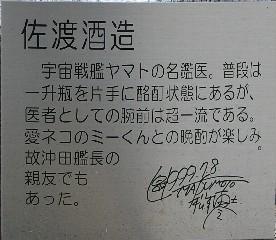 佐渡酒造
宇宙戦艦ヤマトの名鑑医。普段は
一升瓶を片手に酩酊状態にあるが、
医者としての腕前は超一流である。
愛ネコのミーくんとの晩酌が楽しみ。
故沖田艦長の
親友でも
あった。
1999.7.8